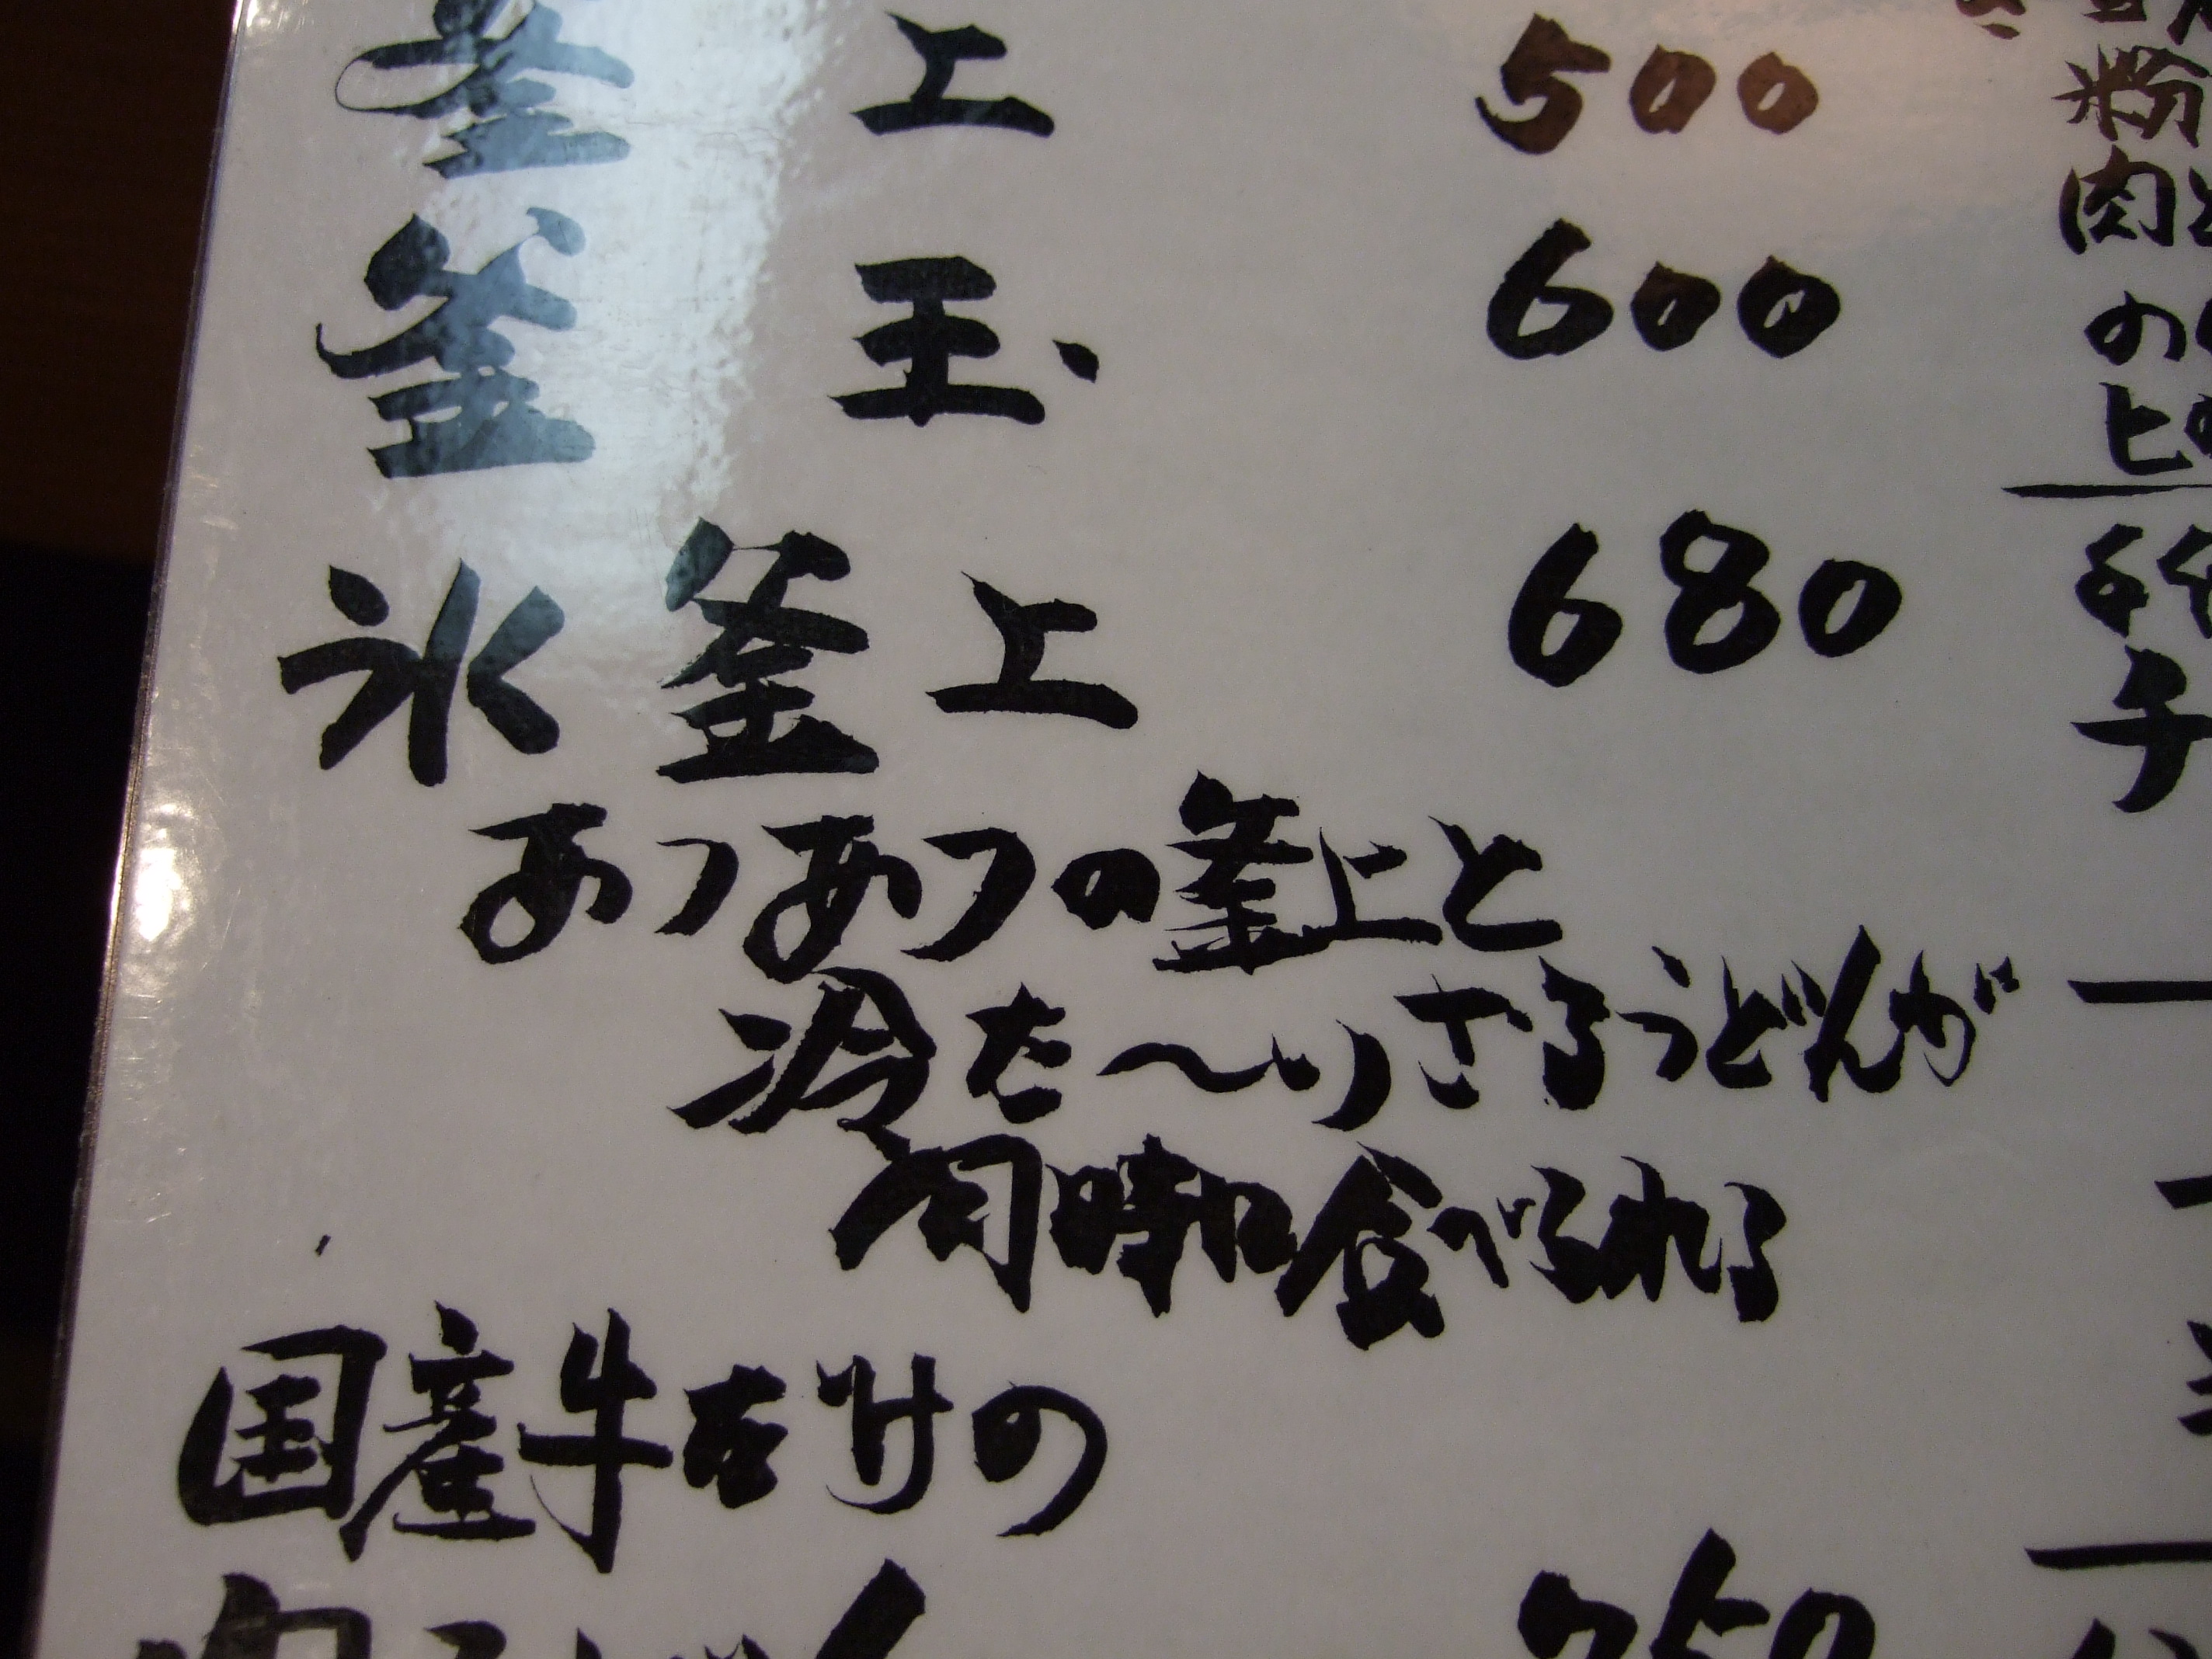 釜上 500
釜玉 600
氷釜上 680
あつあつの釜上と
冷た〜いざるうどんが
同時に食べられる
国産牛だけの
肉うどん 750
粉
肉
の